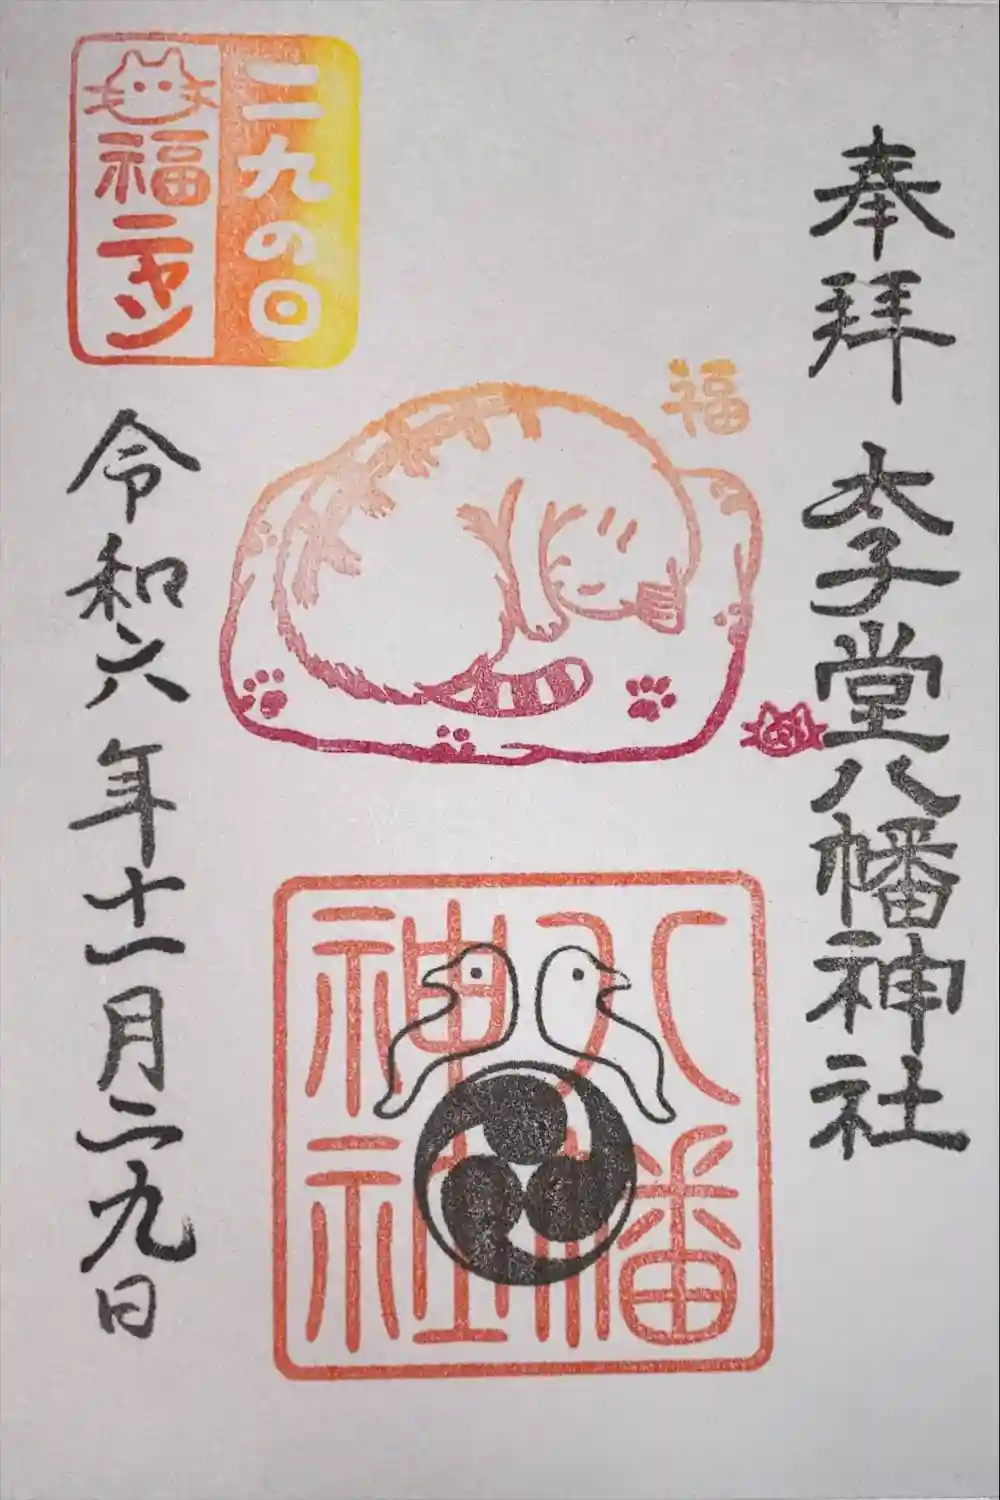 奉拝 太子堂八幡神社
福
八幡
神社
二九の日
福ニャン
令和六年十一月二九日